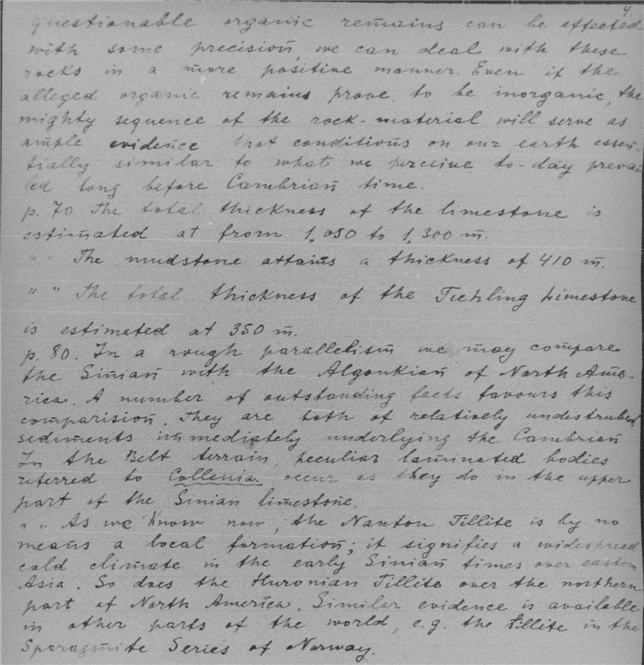 4
questionable organic remains can be effected
with some precision, we can deal with these
rocks in a more positive manner. Even if the
alleged organic remains prove to be inorganic, the
mighty sequence of the rock-material will serve as
ample evidence that conditions on our earth essen-
tially similar to what we perceive to-day prevai-
led long before Cambrian time.
p. 70 The total thickness of the limestone is
estimated at from 1,050 to 1,300 m.
" " The mudstone attains a thickness of 410 m.
" " The total thickness of the Limestone
is estimated at 350 m.
p. 80. In a rough parallelism we may compare
the Sinian with the Algonkian of North Ame-
rica. A number of outstanding facts favours this
comparision. They are both of relatively undestrubed
sediments immediately underlying the Cambrian
In the Belt terrain, peculiar laminated bodies
referred to Collenia occur as they do in the upper
part of the Sinian limestone.
" " As we know now, the Nantou Tillite is by no
means a local formation; it signifies a widespread
cold climate in the early Sinian times over eastern
Asia. So does the Huronian Tillite over the northern
part of North America. Similar evidence is available
in other parts of the world, e.g. the tillite in the
Sparagmite Series of Norway.